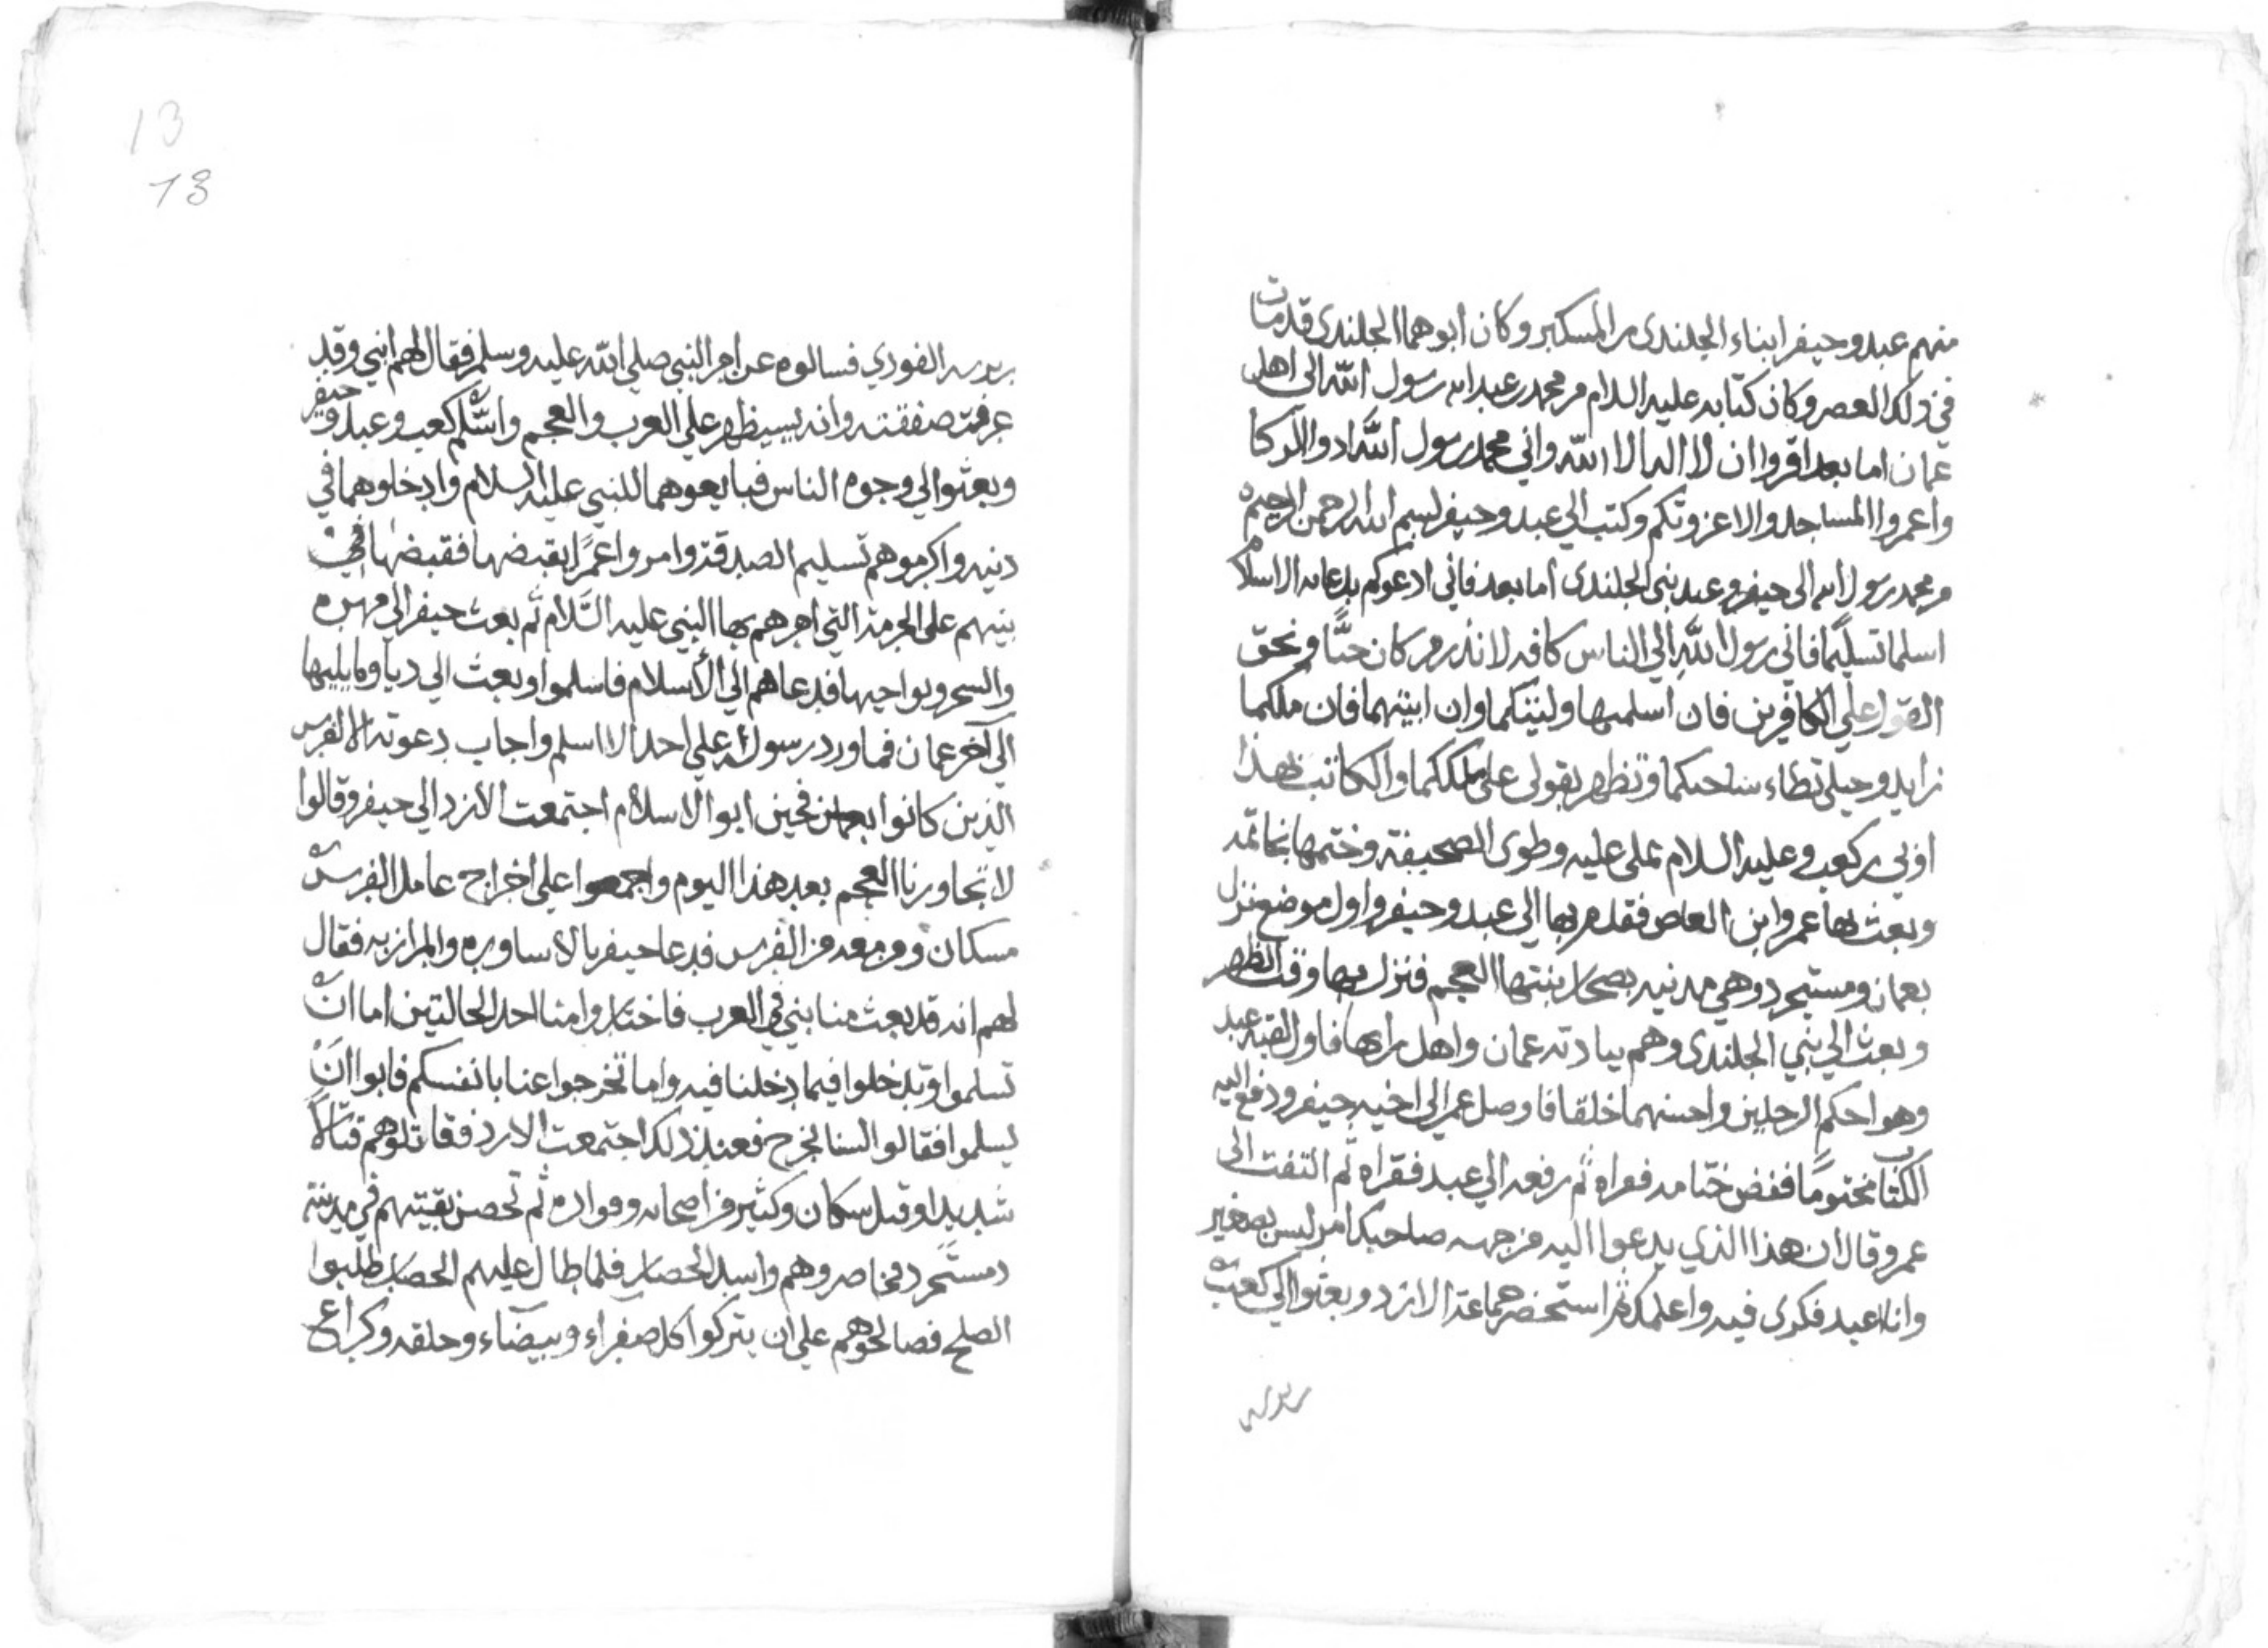 منهم عبد وحيفر ابناء الجلندى بن المستكبر وكان ابوهما الجلندى قد مات
في ذلك العصر وكان كتابه عليه السلام من محمد بن عبد الله رسول الله الى اهل
عمان اما بعد اقروا ان لا اله الا الله واني محمد رسول الله ادوا الزكا
واعمروا المساجد والا غزوتكم وكتب الى عبد وحيفر بسم الله الرحمن الرحيم
من محمد رسول الله الى حيفر وعبد بني الجلندى اما بعد فاني ادعوكم بدعايه الاسلام
اسلما تسلما فاني رسول الله الي الناس كافه لانذر من كان حيّا ويحق
القول علي الكافرين فان اسلمتما وليتكما وان ابيتما فان ملككما
زايد وخيلي تطاء ساحتكما وتظهر بقولى على ملككما والكاتب لهذا
اوبي بن كعب وعليه السلام يملى عليه وطوى الصحيفة وختمها بخاتمه
وبعث بها عمروا بن العاص فقدم بها الى عبد وحيفر واول موضع نزل
بعمان ومستجرد وهي مدنيه بصحار بنتها العجم فنزل بها وقت الظهر
وبعث الي بني الجلندى وهم بيادته عمان واهل رايها فاول لقيه عبد
وهو احكم الرجلين واحسنهما خلقا فاوصل عمر الى اخيه حيفر ودفع اليه
الكتاب مختومًا ففض ختامه فقراه ثم رفعه الي عبد فقراه ثم التفت الى
عمر وقال ان هذا الذي يدعوا اليه من جهه صاحبك امر ليس بصغير
وانا اعيد فكري فيه واعلمك ثم استحضر جماعة الازد وبعثوا الي كعب
بن برسه
13
13
بن برسه الفودي فسالوه عن امر النبي صلى الله عليه وسلم فقال لهم انبي وقد
عرفت صفقته وانه سيظهر علي العرب والعجم واسلم كعب وعبد و حيفر
وبعثوا الي وجوه الناس فبايعوهما للنبي عليه السلام وادخلوهما في
دنيه واكرموهم تسليم الصدقة وامروا عمرًا بقبضها فقبضها في
بينهم على الجرمة التي امرهم بها النبي عليه السّلام ثم بعث حيفر الى مهره
والسحر ونواحيها فدعاهم الي الأسلام فاسلموا وبعث الى دبا وما يليها
الى آخر عمان فما ورد رسوله علي احد الا اسلم واجاب دعوته الا الفرس
الذين كانوا بعمان فحين ابوا الاسلام اجتمعت الازد الي حيفر وقالوا
لا تجاورنا العجم بعد هذا اليوم واجمعوا علي اخراج عامل الفرس
مسكان ومن معه من الفرس فدعا حيفر بالاساوره والمرازبه فقال
لهم انه قد بعث منا بني في العرب فاختاروا منا احد الحالتين اما ان
تسلموا وتدخلوا فيما دخلنا فيه واما تخرجوا عنا بانفسكم فابوا ان
يسلموا فقالوا لسنا نخرج فعند ذلك اجتمعت الازد فقاتلوهم قتالاً
شديدا وقتل سكان وكثير من اصحابه وقواده ثم تحصن بقيتهم في مدينة
دمستجرد فحاصروهم واشد الحصار فلما طال عليهم الحصار طلبوا
الصلح فصالحوهم علي ان يتركوا كل صفراء وبيضاء وحلقه وكراع